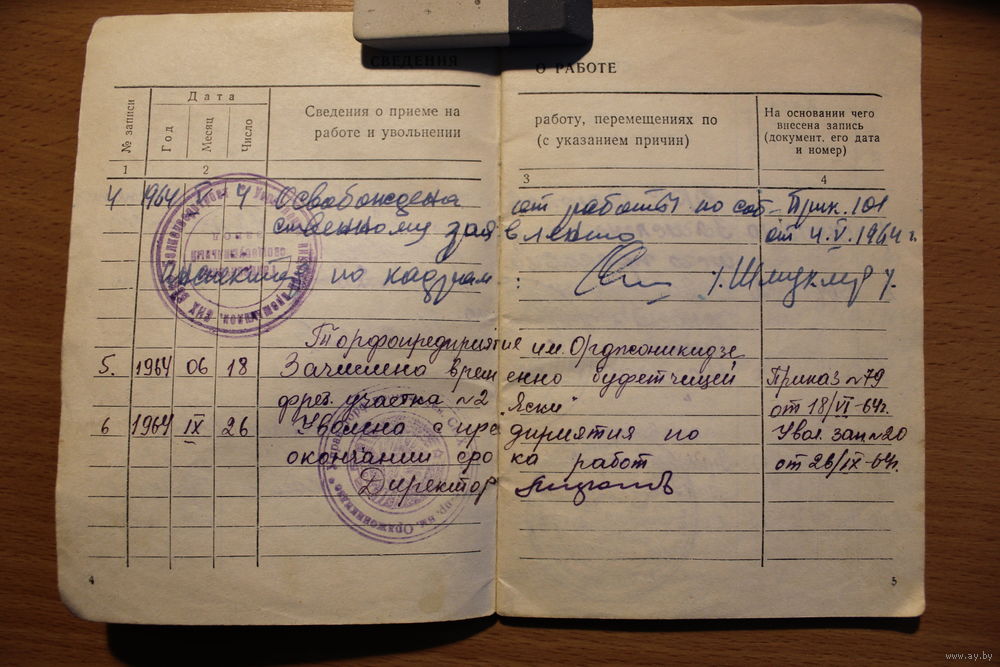 СВЕДЕНИЯ О РАБОТЕ
№ записи
Дата
Год
Месяц
Число
Сведения о приеме на работу, перемещениях по
работе и увольнении (с указанием причин)
На основании чего
внесена запись
(документ, его дата
и номер)
1 2 3 4
4 1964 V 4 Освобождена от работы по соб- Прик. 101
ственному заявлению от 4.V.1964 г.
по кадрам
Торфопредприятие им. Орджоникидзе
5. 1964 06 18 Зачислена временно буфетчицей Приказ №79
участка №2 "Яски" от 18/VI-64г.
6 1964 IX 26 Уволена с предприятия по Увол. зап №20
окончании срока работ от 26/IX-64г.
Директор
4
5
www.ay.by